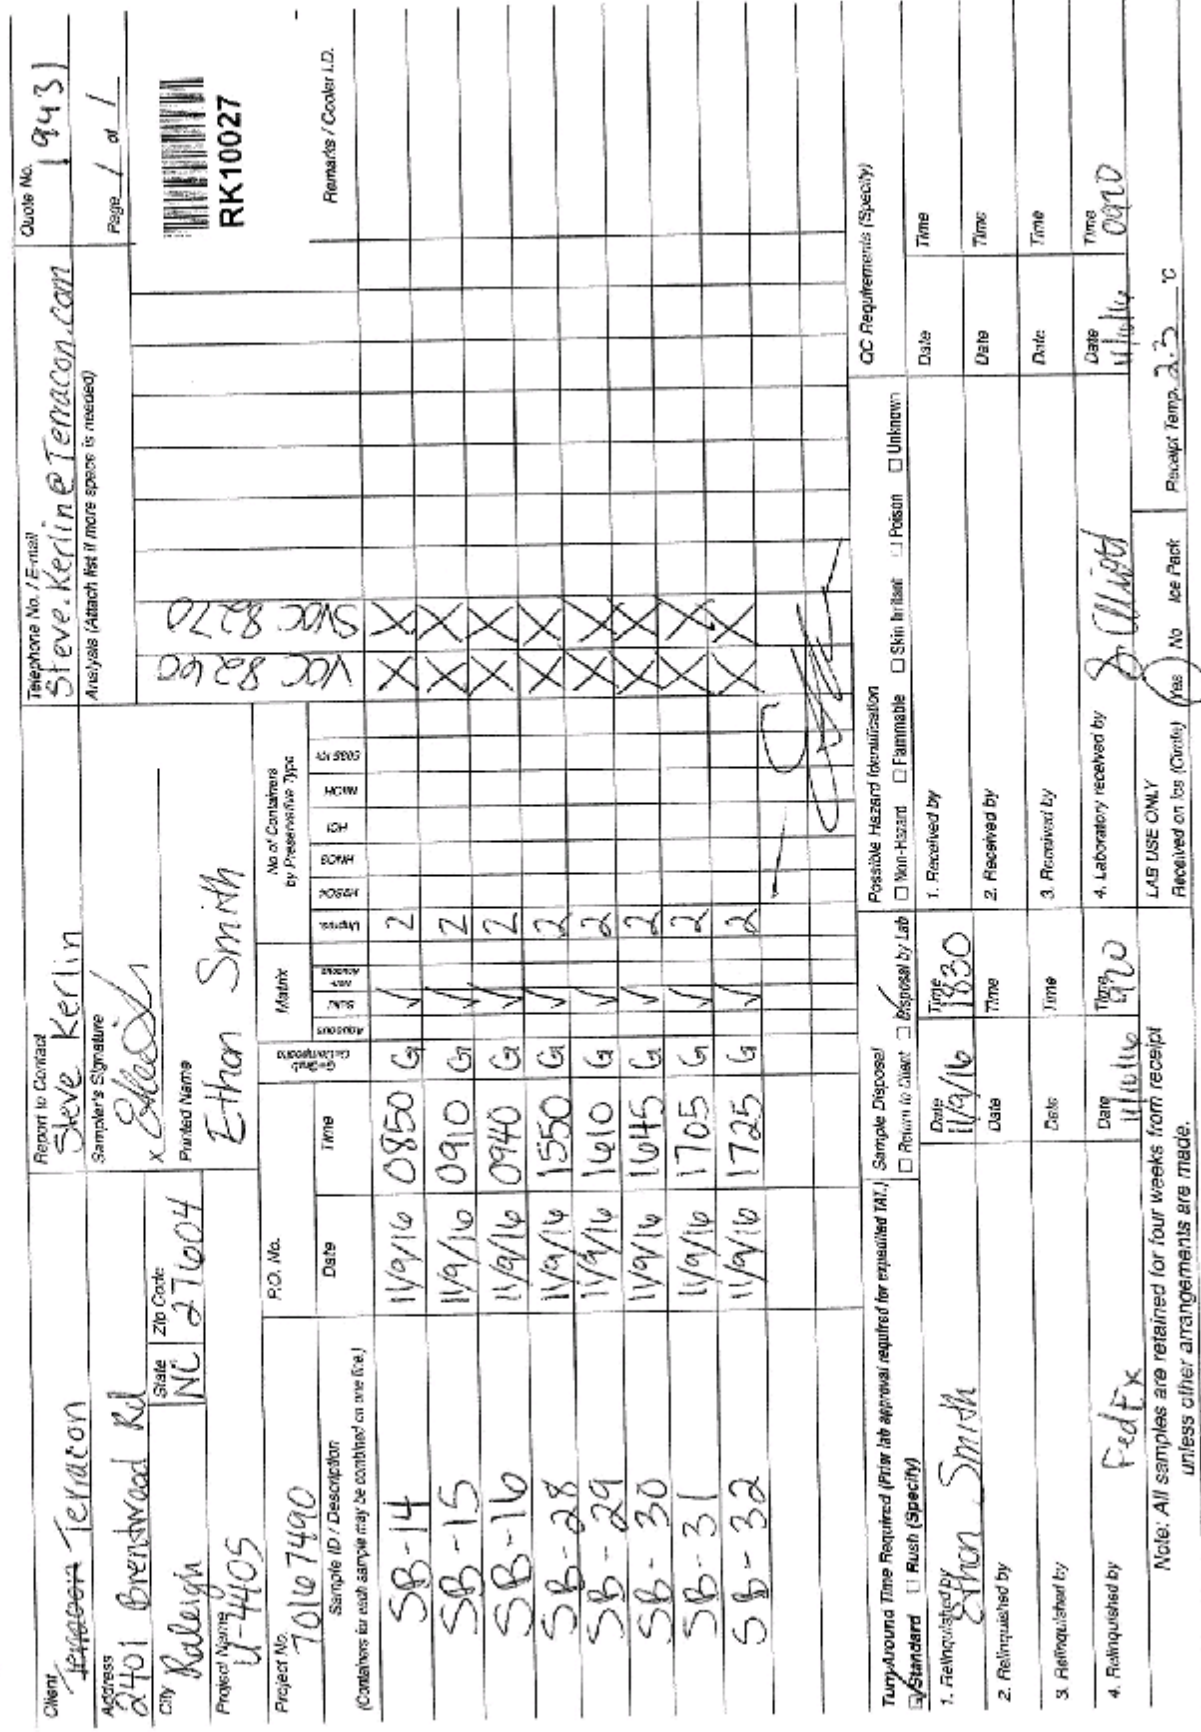 Client
Terracon Terracon
Report to Contact
Steve Kerlin
Telephone No. / E-mail
Steve.Kerlin@Terracon.com
Quote No.
19431
Address
2401 Brentwood Rd
Sampler's Signature
X
Analysis (Attach list if more space is needed)
Page 1 of 1
City
Raleigh
State
NC
Zip Code
27604
Printed Name
Ethan Smith
VOC 8260
SVOC 8270
RK10027
Project Name
U-4405
Project No.
70167490
P.O. No.
Matrix
No of Containers
by Preservative Type
Sample ID / Description
(Containers for each sample may be combined on one line.)
Date
Time
G=Grab C=Composite
Aqueous
Solid
Non-Aqueous
Unpres.
H2SO4
HNO3
HCl
NaOH
5035 Kit
Remarks / Cooler I.D.
SB-14 11/9/16 0850 G ✓ 2 X X
SB-15 11/9/16 0910 G ✓ 2 X X
SB-16 11/9/16 0940 G ✓ 2 X X
SB-28 11/9/16 1550 G ✓ 2 X X
SB-29 11/9/16 1610 G ✓ 2 X X
SB-30 11/9/16 1645 G ✓ 2 X X
SB-31 11/9/16 1705 G ✓ 2 X X
SB-32 11/9/16 1725 G ✓ 2 X X
Turn Around Time Required (Prior lab approval required for expedited TAT.)
☑ Standard ☐ Rush (Specify)
Sample Disposal
☐ Return to Client ☑ Disposal by Lab
Possible Hazard Identification
☐ Non-Hazard ☐ Flammable ☐ Skin Irritant ☐ Poison ☐ Unknown
QC Requirements (Specify)
1. Relinquished by Ethan Smith Date 11/9/16 Time 1830 1. Received by Date Time
2. Relinquished by Date Time 2. Received by Date Time
3. Relinquished by Date Time 3. Received by Date Time
4. Relinquished by FedEx Date 11/10/16 Time 920 4. Laboratory received by Date 11/10/16 Time 0920
Note: All samples are retained for four weeks from receipt
unless other arrangements are made.
LAB USE ONLY
Received on Ice (Circle) Yes No Ice Pack Receipt Temp. 2.3 °C